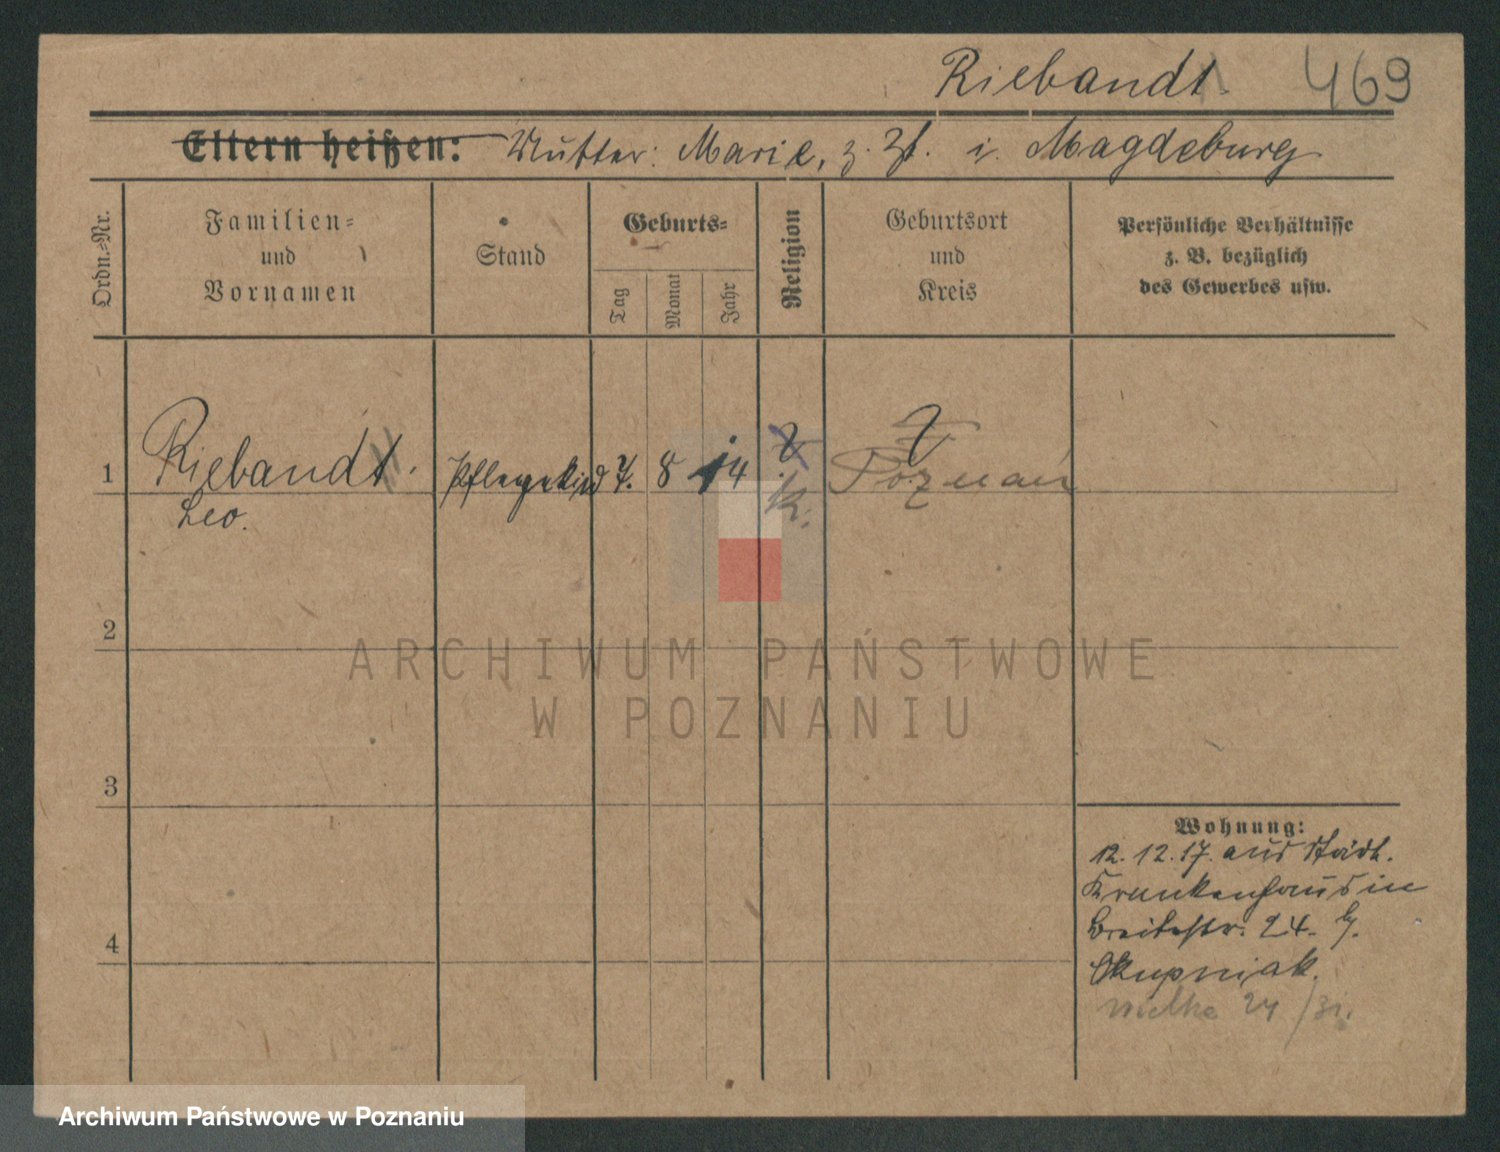 Riebandt. 469
Eltern heißen: Mutter: Marie, z. Zt. i. Magdeburg
Ordn.=Nr.
Familien=
und
Vornamen
Stand
Geburts=
Tag
Monat
Jahr
Religion
Geburtsort
und
Kreis
Persönliche Verhältnisse
z. B. bezüglich
des Gewerbes usw.
1 Riebandt. Pflegekind 7. 8 14 ? ?
Leo. k. Poznań
2
3
4
Wohnung:
12. 12. 17. aus städt.
Krankenhaus in
Breitestr. 24. b.
Skupniak.
Wielka 24 /31.
ARCHIWUM PAŃSTWOWE
W POZNANIU
Archiwum Państwowe w Poznaniu